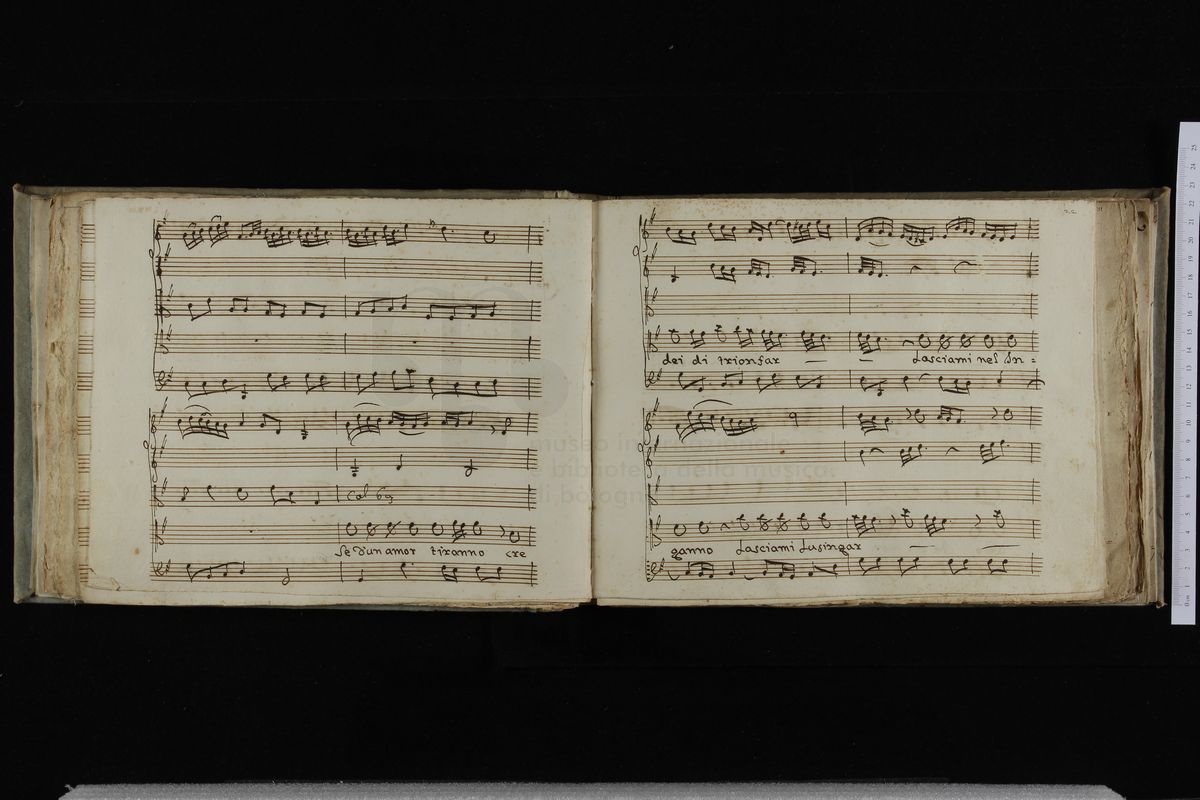 Col B.
Se d'un amor tiranno cre
22
dei di trionfar
Lasciami nel In=
ganno Lasciami Lusingar
museo internazionale
e biblioteca della musica
di bologna